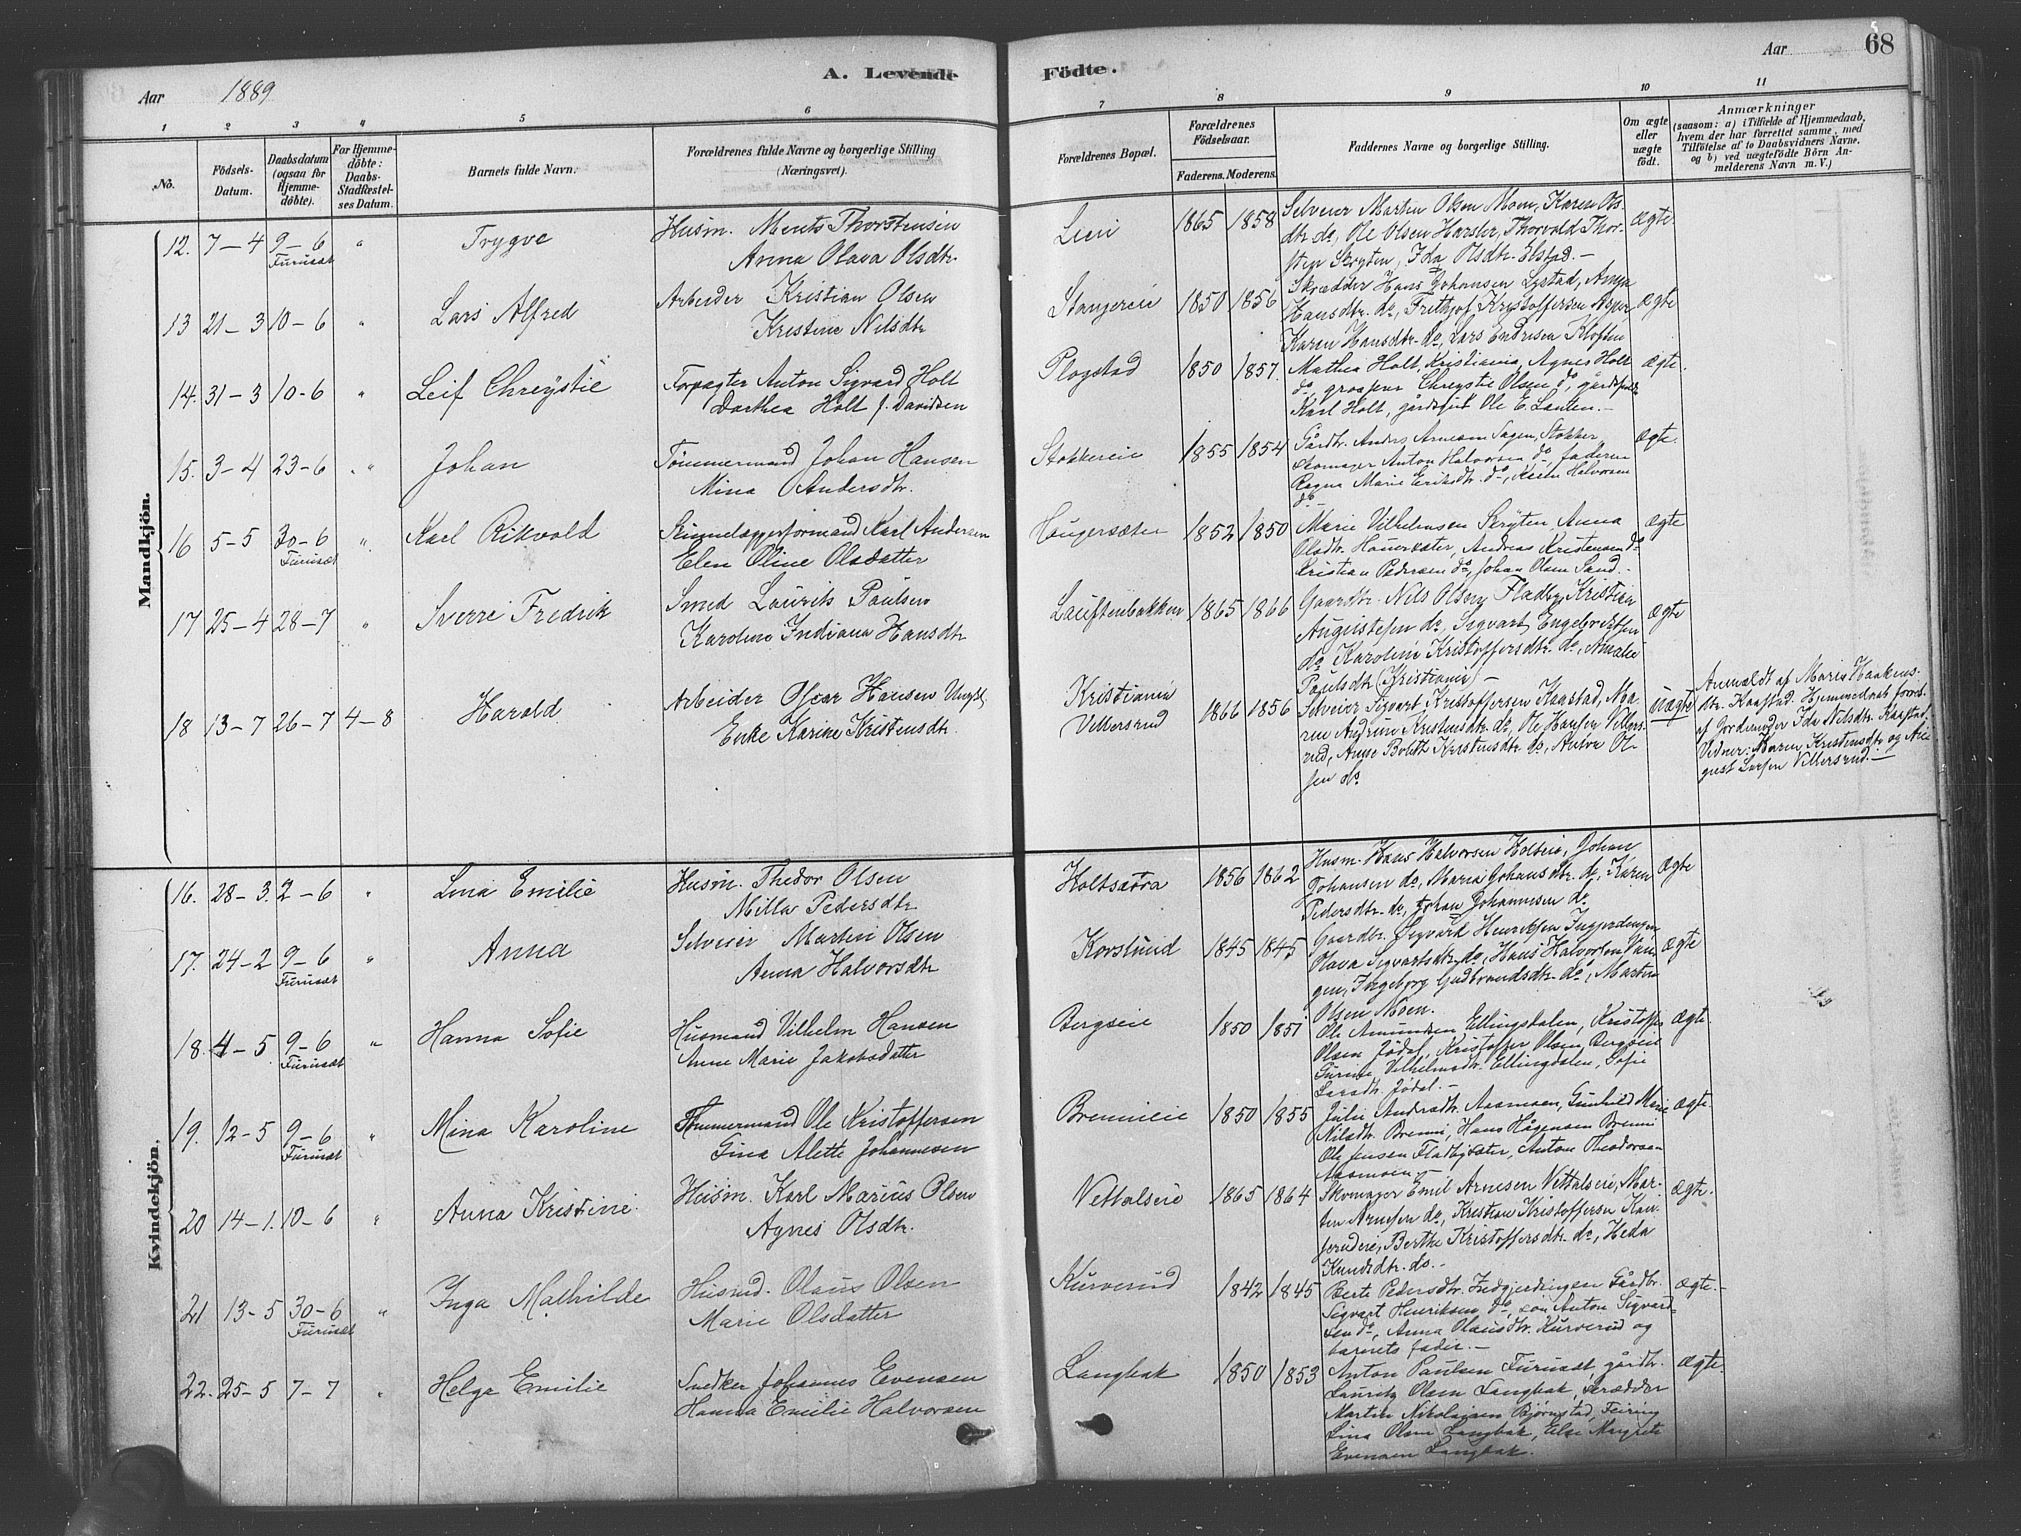 Aar 1889
A. Levende
Födte.
Aar
68
1 2 3 4 5 6 7 8 9 10 11
No.
Födsels-
Datum.
Daabsdatum
(ogsaa for
Hjemme-
döbte).
For Hjemme-
döbte:
Daabs-
Stadfæstel-
ses Datum.
Barnets fulde Navn.
Forældrenes fulde Navne og borgerlige Stilling
(Næringsvei).
Forældrenes Bopæl.
Forældrenes
Födselsaar.
Faderens. Moderens.
Faddernes Navne og borgerlige Stilling.
Om ægte
eller
uægte
födt.
Anmærkninger
(saasom: a) i Tilfælde af Hjemmedaab,
hvem der har forrettet samme, med
Tilföielse af to Daabsvidners Navne,
og b) ved uægtefödte Börn An-
melderens Navn m. V.)
Mandkjön.
12. 7-4 9-6 " Trygve
Furuset
Husm. Ments Thorstensen
Anna Olava Olsdtr.
Lien 1865 1858
Selveier Martin Olsen Moen, Karen Ols
dtr. do, Ole Olsen Harsler, Thorvald Thor-
sten Skryten, Ida Olsdtr. Elstad.-
Ægte.
13 21-3 10-6 " Lars Alfred
Arbeider Kristian Olsen
Kristine Nilsdtr
Stangereie 1850 1856
Skrædder Hans Johansen Lystad, Anna
Hansdtr. do, Frithjof Kristoffersen Asper
Karen Hansdtr. do, Lars Endresen Kloften
Ægte
14. 31-3 10-6 " Leif Chrystie
Forpagter Anton Sigvard Holt
Dorthea Holt f. Davidsen
Plogstad 1850 1857.
Mathea Holt, Kristiania, Agnes Holt
do, Chrystie Olsen do,
Karl Holt, Ole E. Lauten.-
ægte.
15. 3-4 23-6 " Johan
Tömmermand Johan Hansen
Mina Andersdtr.
Stokkereie 1855 1854
Gårdbr. Anders Arnesen Sagen, Stokker
Skomager Anton Halvorsen do, faderen
Ragna Marie Eriksdtr. do, Karen Halvorsen
do
ægte.
16 5-5 30-6 " Karl Rikvold
Furuset
Skinnelæggerformand Karl Andersen
Elen Oline Olsdatter
Haugersæter 1852 1850
Marie Vilhelmsen Skryten, Anna
Olsdtr. Hauersæter, Andreas Kristensen do
Kristian Pedersen do, Johan Olsen Sand.-
ægte
17 25-4 28-7 " Sverre Fredrik
Smed Laurits Paulsen
Karoline Indiana Hansdtr
Lauftenbakken 1865 1866
Gaardbr. Nils Olsen Fladby, Kristian
Augustesen do, Sigvart Engebretsen
do Karoline Kristoffersdtr. do, Amalie
Paulsdtr (Kristiania) -
ægte
18 13-7 26-7 4-8 Harald
Arbeider Oscar Hansen Ungk.
Enke Karine Kristensdtr.
Kristiania
Villersrud
1866 1856
Selveier Sigvart Kristoffersen Kaastad, Ma-
ren Andrine Kristensdtr. do, Ole Hansen Villers-
rud, Anne Bolett Kristensdtr. do, Anton Ol-
sen do
uægte
Anmeldt af Maria Haakens-
dtr. Kaastad. Hjemmedaab forret.
af Jordemoder Ida Nilsdtr. Kaastad.
Vidner: Maren Kristensdtr. og Au-
gust Larsen Villersrud.-
Kvindekjön.
16. 28-3. 2-6 " Lina Emilie
Husm. Thedor Olsen
Milla Pedersdtr.
Holtsætra 1856 1862
Husm. Hans Halvorsen Holteie, Johan
Johansen do, Maria Johansdtr. do, Karen
Pedersdtr. do, Johan Johannesen do
Ægte
17. 24-2 9-6 " Anna
Furuset
Selveier Martin Olsen
Anna Halvorsdtr
Korslund 1845 1845
Gaardbr. Sigvart Henriksen Ingjerdingen,
Olava Sigvartsdtr. do, Hans Halvorsen Van-
gen, Ingeborg Gudbrandsdtr. do, Martin
Olsen Moen.
Ægte
18. 4-5 9-6 " Hanna Sofie
Furuset
Husmand Vilhelm Hansen
Anne Marie Jakobsdatter
Bergseie 1850 1851
Ole Amundsen Ellingsdalen, Kristoffer
Olsen Jödal, Kristoffer Olsen Bergseie
Gurine Vilhelmsdtr. Ellingdalen, Sofie
Larsdtr. Jödal.-
ægte.
19. 12-5 9-6 " Mina Karoline
Furuset
Tömmermand Ole Kristoffersen
Gina Alette Johannesen
Brennieie 1850 1855
Julie Andrsdtr. Aasmoen, Gunhild Marie
Nilsdtr. Brenni, Hans Hågensen Brenni
Ole Jensen Fladbysæter, Anton Theodorsen
Aasmoen-
ægte.
20 14-1. 10-6 " Anna Kristine.
Husm. Karl Marius Olsen
Agnes Olsdtr.
Nettalseie 1865 1864
Skomager Emil Arnesen Nettalseie, Mar-
ten Arnesen do, Kristian Kristoffersen Kau-
serudeie, Berthe Kristoffersdtr. do, Heda
Knudsdtr. do.-
Ægte.
21 13-5 30-6 " Inga Mathilde
Furuset
Husmd. Olaus Olsen
Marie Olsdatter
Kurverud 1842 1845
Berte Pedersdtr. Indgjerdingen Gårdbr.
Sigvart Henriksen do, søn Anton Sigvard-
sen do, Anna Olausdtr. Kurverud og
barnets fader.-
Ægte.-
22. 25-5 7-7 " Helga Emilie
Snedker Johannes Evensen
Hanna Emilie Halvorsen
Langbak 1850 1853
Anton Paulsen Furuset, gårdbr.
Lauritz Olsen Langbak, Skrædder
Martin Nikolaisen Bjørnstad, Feiring
Lina Olsen Langbak, Else Margrete
Evensen Langbak.
Ægte.